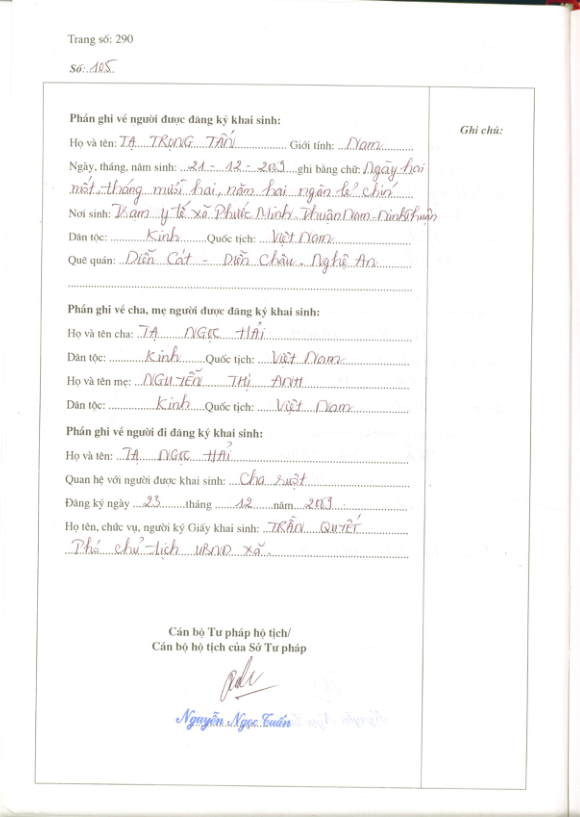 Trang số: 290
Số: 105
Ghi chú:
Phần ghi về người được đăng ký khai sinh:
Họ và tên: TẠ TRỌNG TẤN Giới tính: Nam
Ngày, tháng, năm sinh: 21 - 12 - 2009 ghi bằng chữ: Ngày hai
mốt, tháng mười hai, năm hai ngàn lẻ chín
Nơi sinh: Trạm y tế xã Phước Minh - Thuận Nam - Ninh Thuận
Dân tộc: Kinh Quốc tịch: Việt Nam
Quê quán: Diễn Cát - Diễn Châu - Nghệ An
Phần ghi về cha, mẹ người được đăng ký khai sinh:
Họ và tên cha: TẠ NGỌC HẢI
Dân tộc: Kinh Quốc tịch: Việt Nam
Họ và tên mẹ: NGUYỄN THỊ ANH
Dân tộc: Kinh Quốc tịch: Việt Nam
Phần ghi về người đi đăng ký khai sinh:
Họ và tên: TẠ NGỌC HẢI
Quan hệ với người được khai sinh: Cha ruột
Đăng ký ngày 23 tháng 12 năm 2009
Họ tên, chức vụ, người ký Giấy khai sinh: TRẦN QUYẾT
Phó chủ tịch UBND xã.
Cán bộ Tư pháp hộ tịch/
Cán bộ hộ tịch của Sở Tư pháp
Nguyễn Ngọc Tuấn